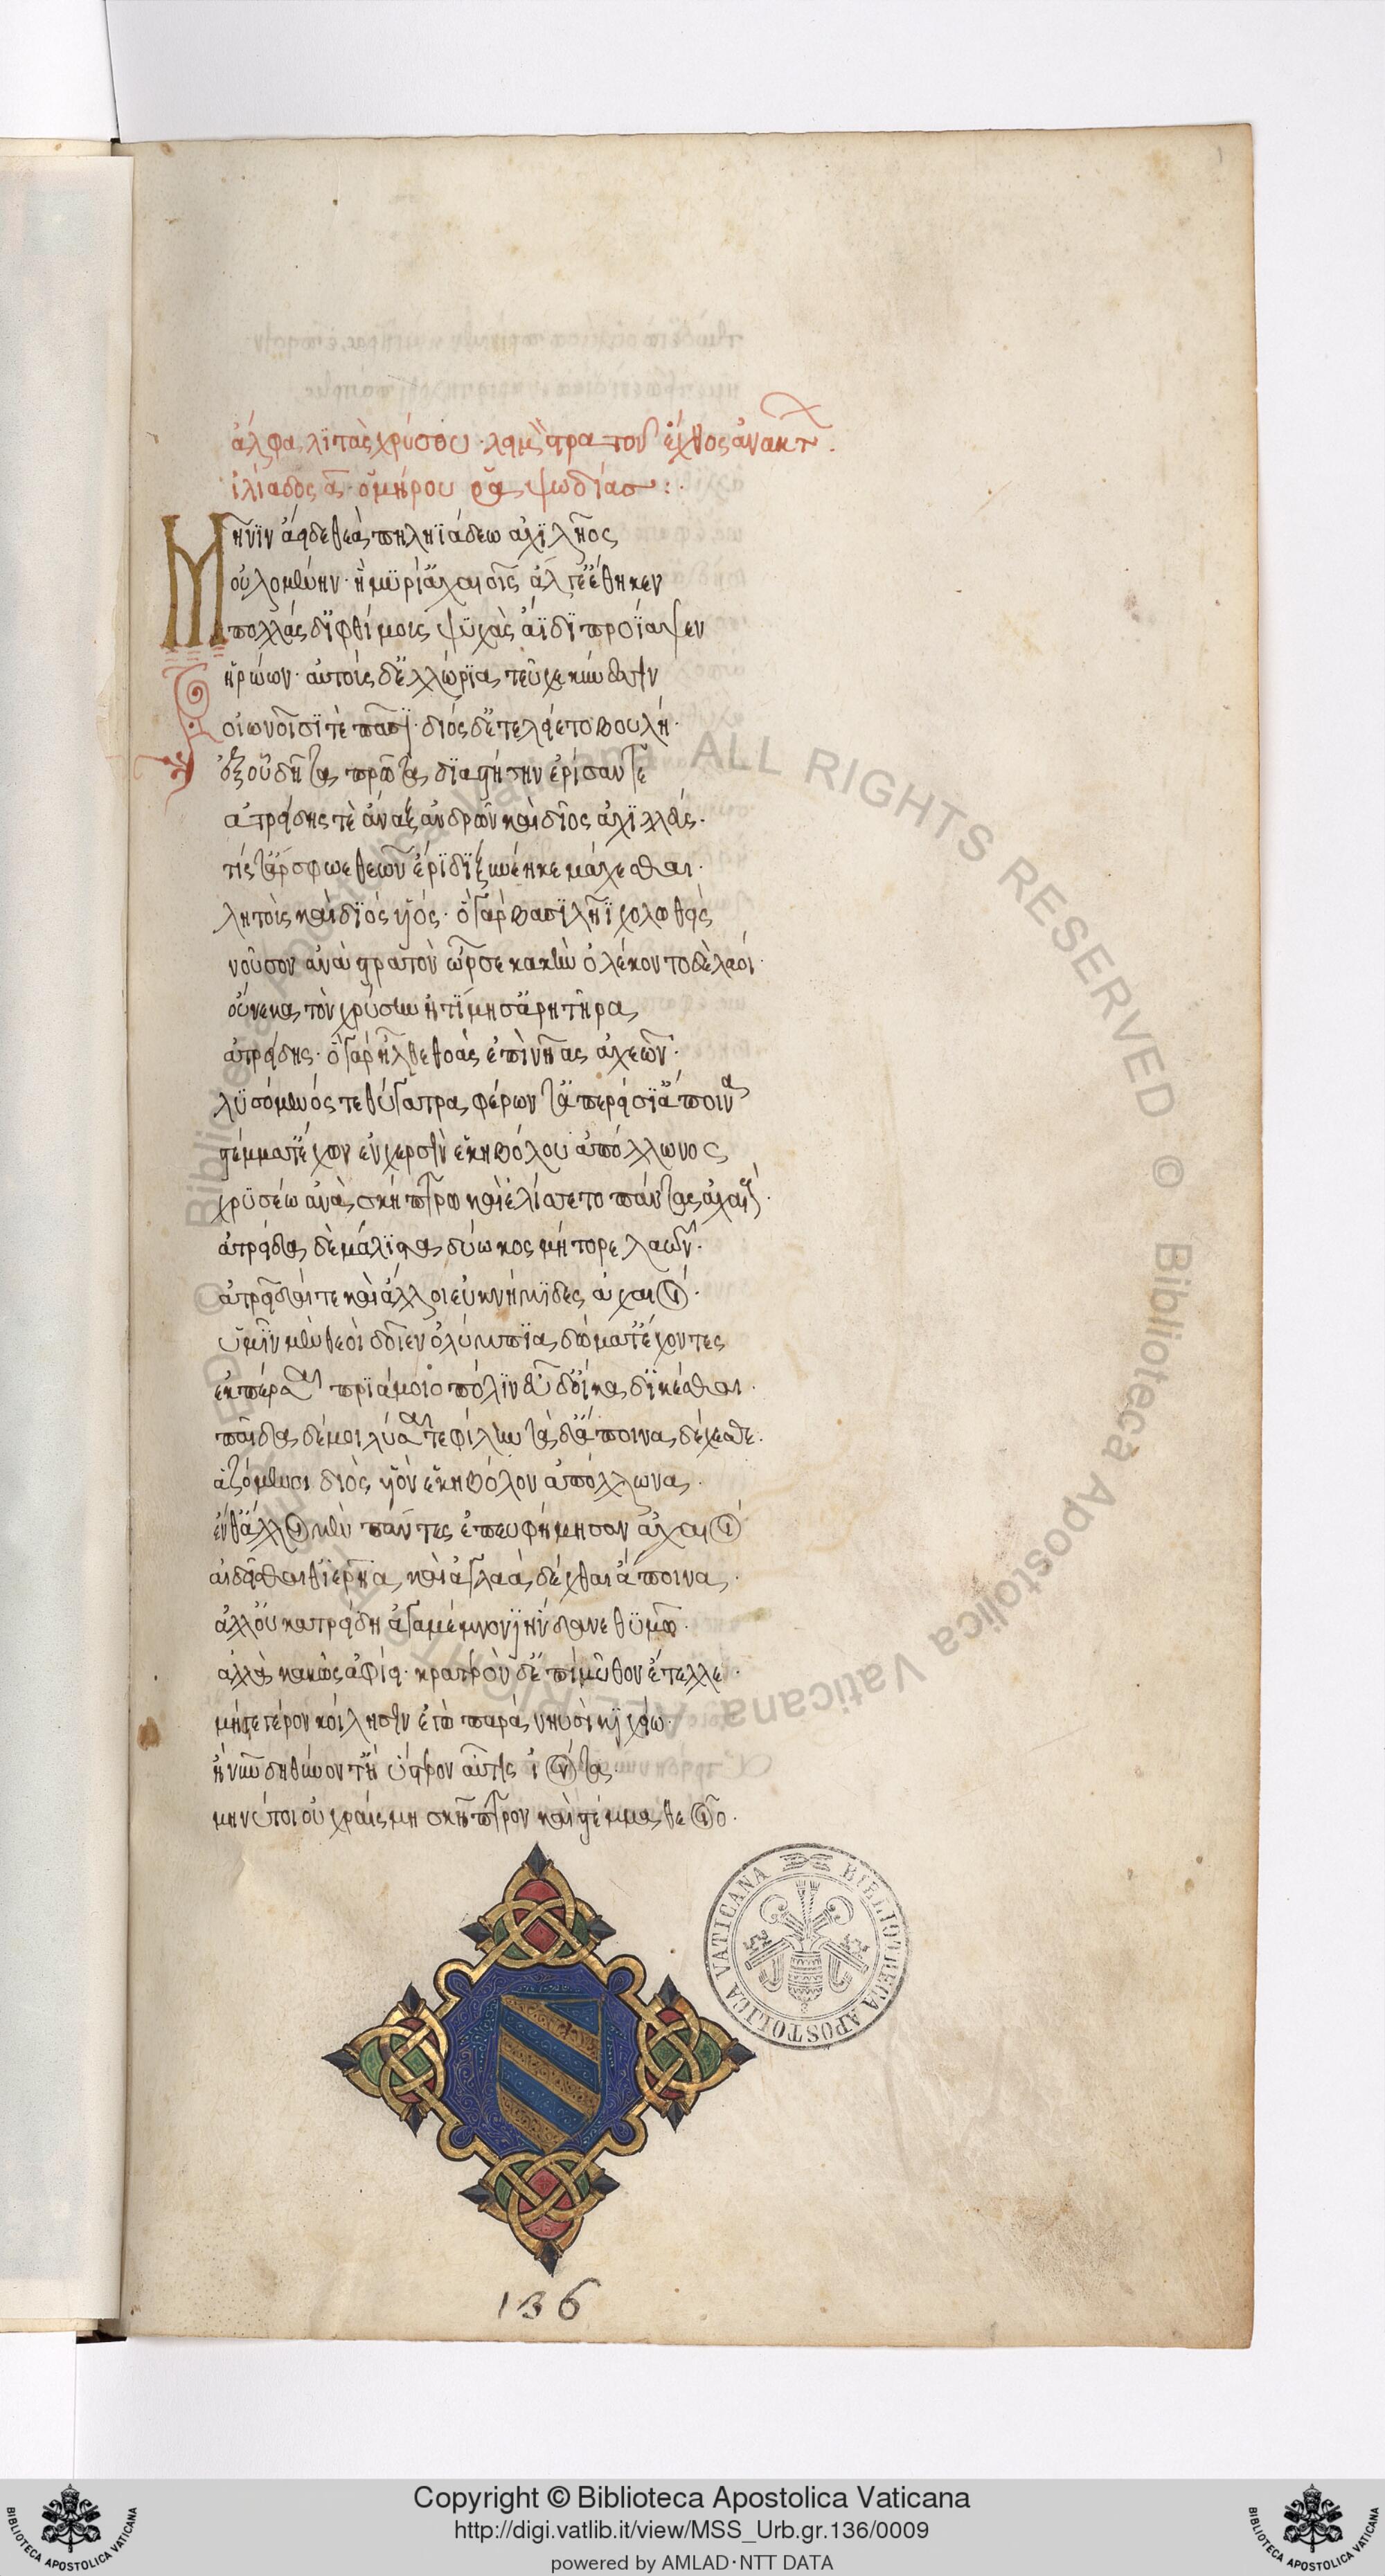 ἄλφα λιτὰς χρύσου· λοιμὸν στρατοῦ ἔχθος ἀνάκτων.
ἰλιάδος α ὁμήρου ῥαψωδίας:
Μῆνιν ἄειδε θεὰ πηληϊάδεω ἀχιλῆος
οὐλομένην· ἣ μυρί' ἀχαιοῖς ἄλγε' ἔθηκεν
πολλὰς δ' ἰφθίμους ψυχὰς ἄϊδι προΐαψεν
ἡρώων· αὐτοὺς δ' ἑλλώρια τεῦχε κύνεσσιν
οἰωνοῖσί τε πᾶσι· διὸς δ' ἐτελείετο βουλή·
ἐξ οὗ δὴ τὰ πρῶτα διαστήτην ἐρίσαντε
ἀτρείδης τὲ ἄναξ ἀνδρῶν καὶ δῖος ἀχιλλεύς·
τίς τ' ἄρ σφωε θεῶν ἔριδι ξυνέηκε μάχεσθαι·
λητοῦς καὶ διὸς υἱός· ὁ γὰρ βασιλῆϊ χολωθεὶς
νοῦσον ἀνὰ στρατὸν ὦρσε κακὴν ὀλέκοντο δὲ λαοί·
οὕνεκα τὸν χρύσην ἠτίμησ' ἀρητῆρα
ἀτρείδης· ὁ γὰρ ἦλθε θοὰς ἐπὶ νῆας ἀχαιῶν·
λυσόμενός τε θύγατρα φέρων τ' ἀπερείσι' ἄποινα
στέμματ' ἔχων ἐν χερσὶν ἑκηβόλου ἀπόλλωνος
χρυσέω ἀνὰ σκήπτρω καὶ ἐλίσσετο πάντας ἀχαιούς·
ἀτρείδα δὲ μάλιστα δύω κοσμήτορε λαῶν·
ἀτρεῖδαί τε καὶ ἄλλοι ἐϋκνήμιδες ἀχαιοί·
ὑμῖν μὲν θεοὶ δοῖεν ὀλύμπια δώματ' ἔχοντες
ἐκπέρσαι πριάμοιο πόλιν εὖ δ' οἴκαδ' ἱκέσθαι·
παῖδα δέ μοι λύσαιτε φίλην τὰ δ' ἄποινα δέχεσθε·
ἁζόμενοι διὸς υἱὸν ἑκηβόλον ἀπόλλωνα·
ἔνθ' ἄλλοι μὲν πάντες ἐπευφήμησαν ἀχαιοί
αἰδεῖσθαί θ' ἱερῆα καὶ ἀγλαὰ δέχθαι ἄποινα·
ἀλλ' οὐκ ἀτρείδη ἀγαμέμνονι ἥνδανε θυμῶ·
ἀλλὰ κακῶς ἀφίει· κρατερὸν δ' ἐπὶ μῦθον ἔτελλε·
μή σε γέρον κοίλησιν ἐγὼ παρὰ νηυσὶ κιχείω·
ἢ νῦν δηθύνοντ' ἢ ὕστερον αὖτις ἰόντα·
μή νύ τοι οὐ χραίσμη σκῆπτρον καὶ στέμμα θεοῖο·
136
BIBLIOTHECA APOSTOLICA VATICANA
© Biblioteca Apostolica Vaticana ALL RIGHTS RESERVED
Copyright © Biblioteca Apostolica Vaticana
http://digi.vatlib.it/view/MSS_Urb.gr.136/0009
powered by AMLAD·NTT DATA
BIBLIOTECA APOSTOLICA VATICANA
BIBLIOTECA APOSTOLICA VATICANA